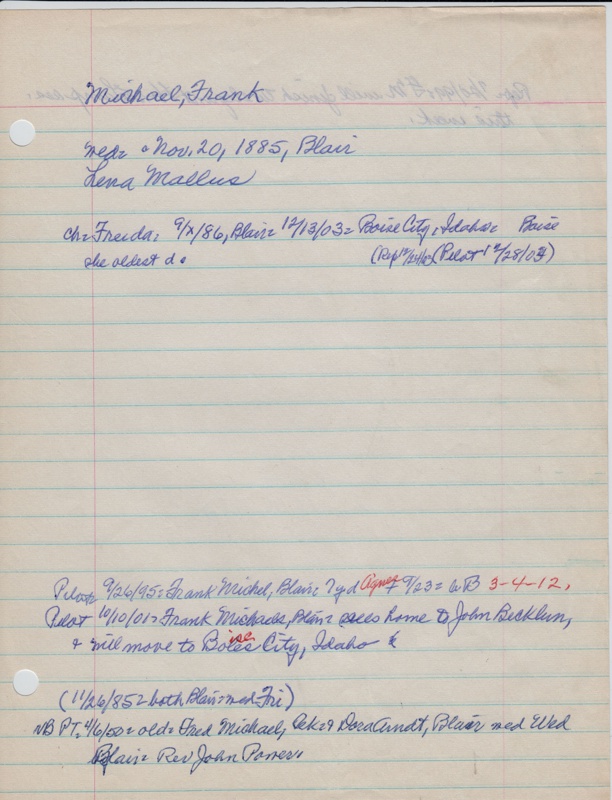 Michael, Frank
med= Nov. 20, 1885, Blair
Lena Mallus
ch= Freida: 9/x/86, Blair= 12/13/03= Boise City, Idaho= Boise
she oldest d. (Rep 12/24/03) (Pilot 12/28/03)
Pilot= 9/26/95= Frank Michel, Blair= 7 y d Agnes + 9/23= 6 B 3-4-12.
Pilot 10/10/01= Frank Michaels, Blair= sells home to John Becklun,
& will move to Boise City, Idaho
(11/26/85= both Blair= med Fri)
NB PT= 4/6/00= old= Fred Michael, & Dora Arndt, Blair med Wed
Blair= Rev John Power.